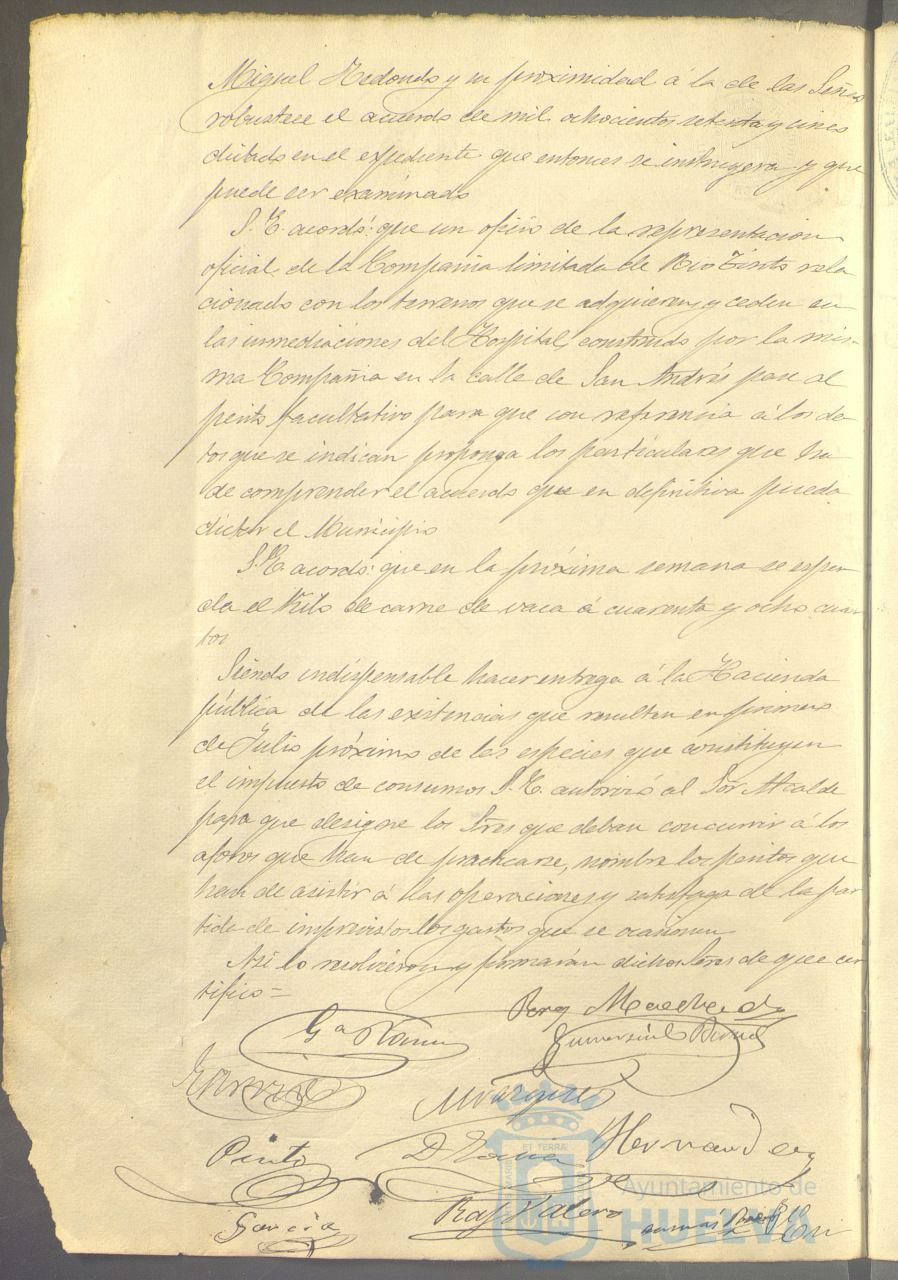 Miguel Redondo y su proximidad á la de las Señas
robustece el acuerdo de mil ochocientos setenta y cinco
dictado en el expediente que entonces se instruyera y que
puede ser examinado
S. E. acordó: que un oficio de la representacion
oficial de la Compañia limitada de Rio Tinto rela
cionado con los terrenos que se adquieren y ceden en
las inmediaciones del Hospital construido por la mis-
ma Compañia en la calle de San Andrés pase al
perito facultativo para que con referencia á los da
tos que se indican proponga los particulares que ha
de comprender el acuerdo que en definitiva pueda
dictar el Municipio
S. E. acordó: que en la próxima semana se espen
da el Kilo de carne de vaca á cuarenta y ocho cuar
tos
Siendo indispensable hacer entrega á la Hacienda
pública de las existencias que resulten en primero
de Julio próximo de las especies que constituyen
el impuesto de consumos S. E. autorizó al Sor Alcalde
para que designe los Sres que deban concurrir á los
aforos que han de practicarse, nombra los peritos que
han de asistir á las operaciones y satisfaga de la par
tida de imprevistos los gastos que se ocasionen
Asi lo resolvieron y firmarán dichos Sres de que cer
tifico=
Machado
Gª
Vazquez
Pinto
D. Garcia
Hernandez
Garcia
Raf Valero
ET TERRÆ
Ayuntamiento de
HUELVA